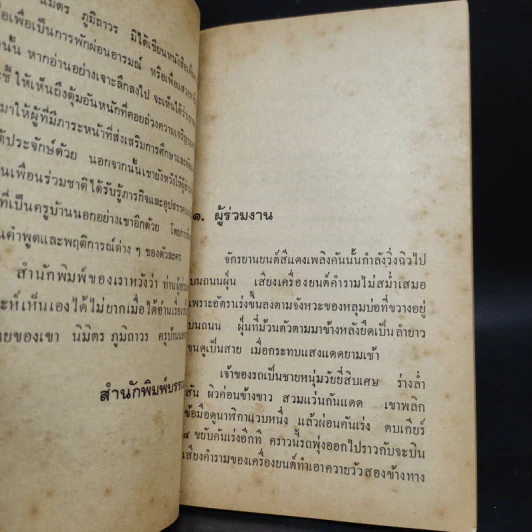 นิมิตร ภูมิถาวร มิได้เขียนหนังสือ
เพื่อเป็นการพักผ่อนอารมณ์ หรือเพื่อ
นั้น หากอ่านอย่างเจาะลึกลงไป จะเห็นได้
ให้เห็นถึงตุ้มอันหนักที่คอยถ่วงความเจริญ
มาให้ผู้ที่มีภาระหน้าที่ส่งเสริมการศึกษาและ
ประจักษ์ด้วย นอกจากนั้นเขายังหวังให้
เพื่อนร่วมชาติได้รับรู้ภารกิจและอุปสรรค
ที่เป็นครูบ้านนอกอย่างเขาอีกด้วย โดย
คำพูดและพฤติการณ์ต่าง ๆ ของตัวละคร
สำนักพิมพ์ของเราหวังว่า ท่านผู้
เห็นเองได้ไม่ยากเมื่อได้อ่านเรื่อง
ของเขา นิมิตร ภูมิถาวร ครูบ้านนอก
สำนักพิมพ์
๑. ผู้ร่วมงาน
จักรยานยนต์สีแดงเพลิงคันนั้นกำลังวิ่งฉิวไป
บนถนนฝุ่น เสียงเครื่องยนต์คำรามไม่สม่ำเสมอ
เพราะอัตราเร่งขึ้นลงตามจังหวะของหลุมบ่อที่ขวางอยู่
บนถนน ฝุ่นที่ม้วนตัวตามมาข้างหลังยืดเป็นลำยาว
จนดูเป็นสาย เมื่อกระทบแสงแดดยามเช้า
เจ้าของรถเป็นชายหนุ่มวัยยี่สิบเศษ ร่างล่ำ
สัน ผิวค่อนข้างขาว สวมแว่นกันแดด เขาพลิก
ข้อมือดูนาฬิกาแวบหนึ่ง แล้วผ่อนคันเร่ง ตบเกียร์
๔ ขยับคันเร่งอีกที คราวนี้รถพุ่งออกไปราวกับจะบิน
เสียงคำรามของเครื่องยนต์ทำเอาควายวัวสองข้างทาง